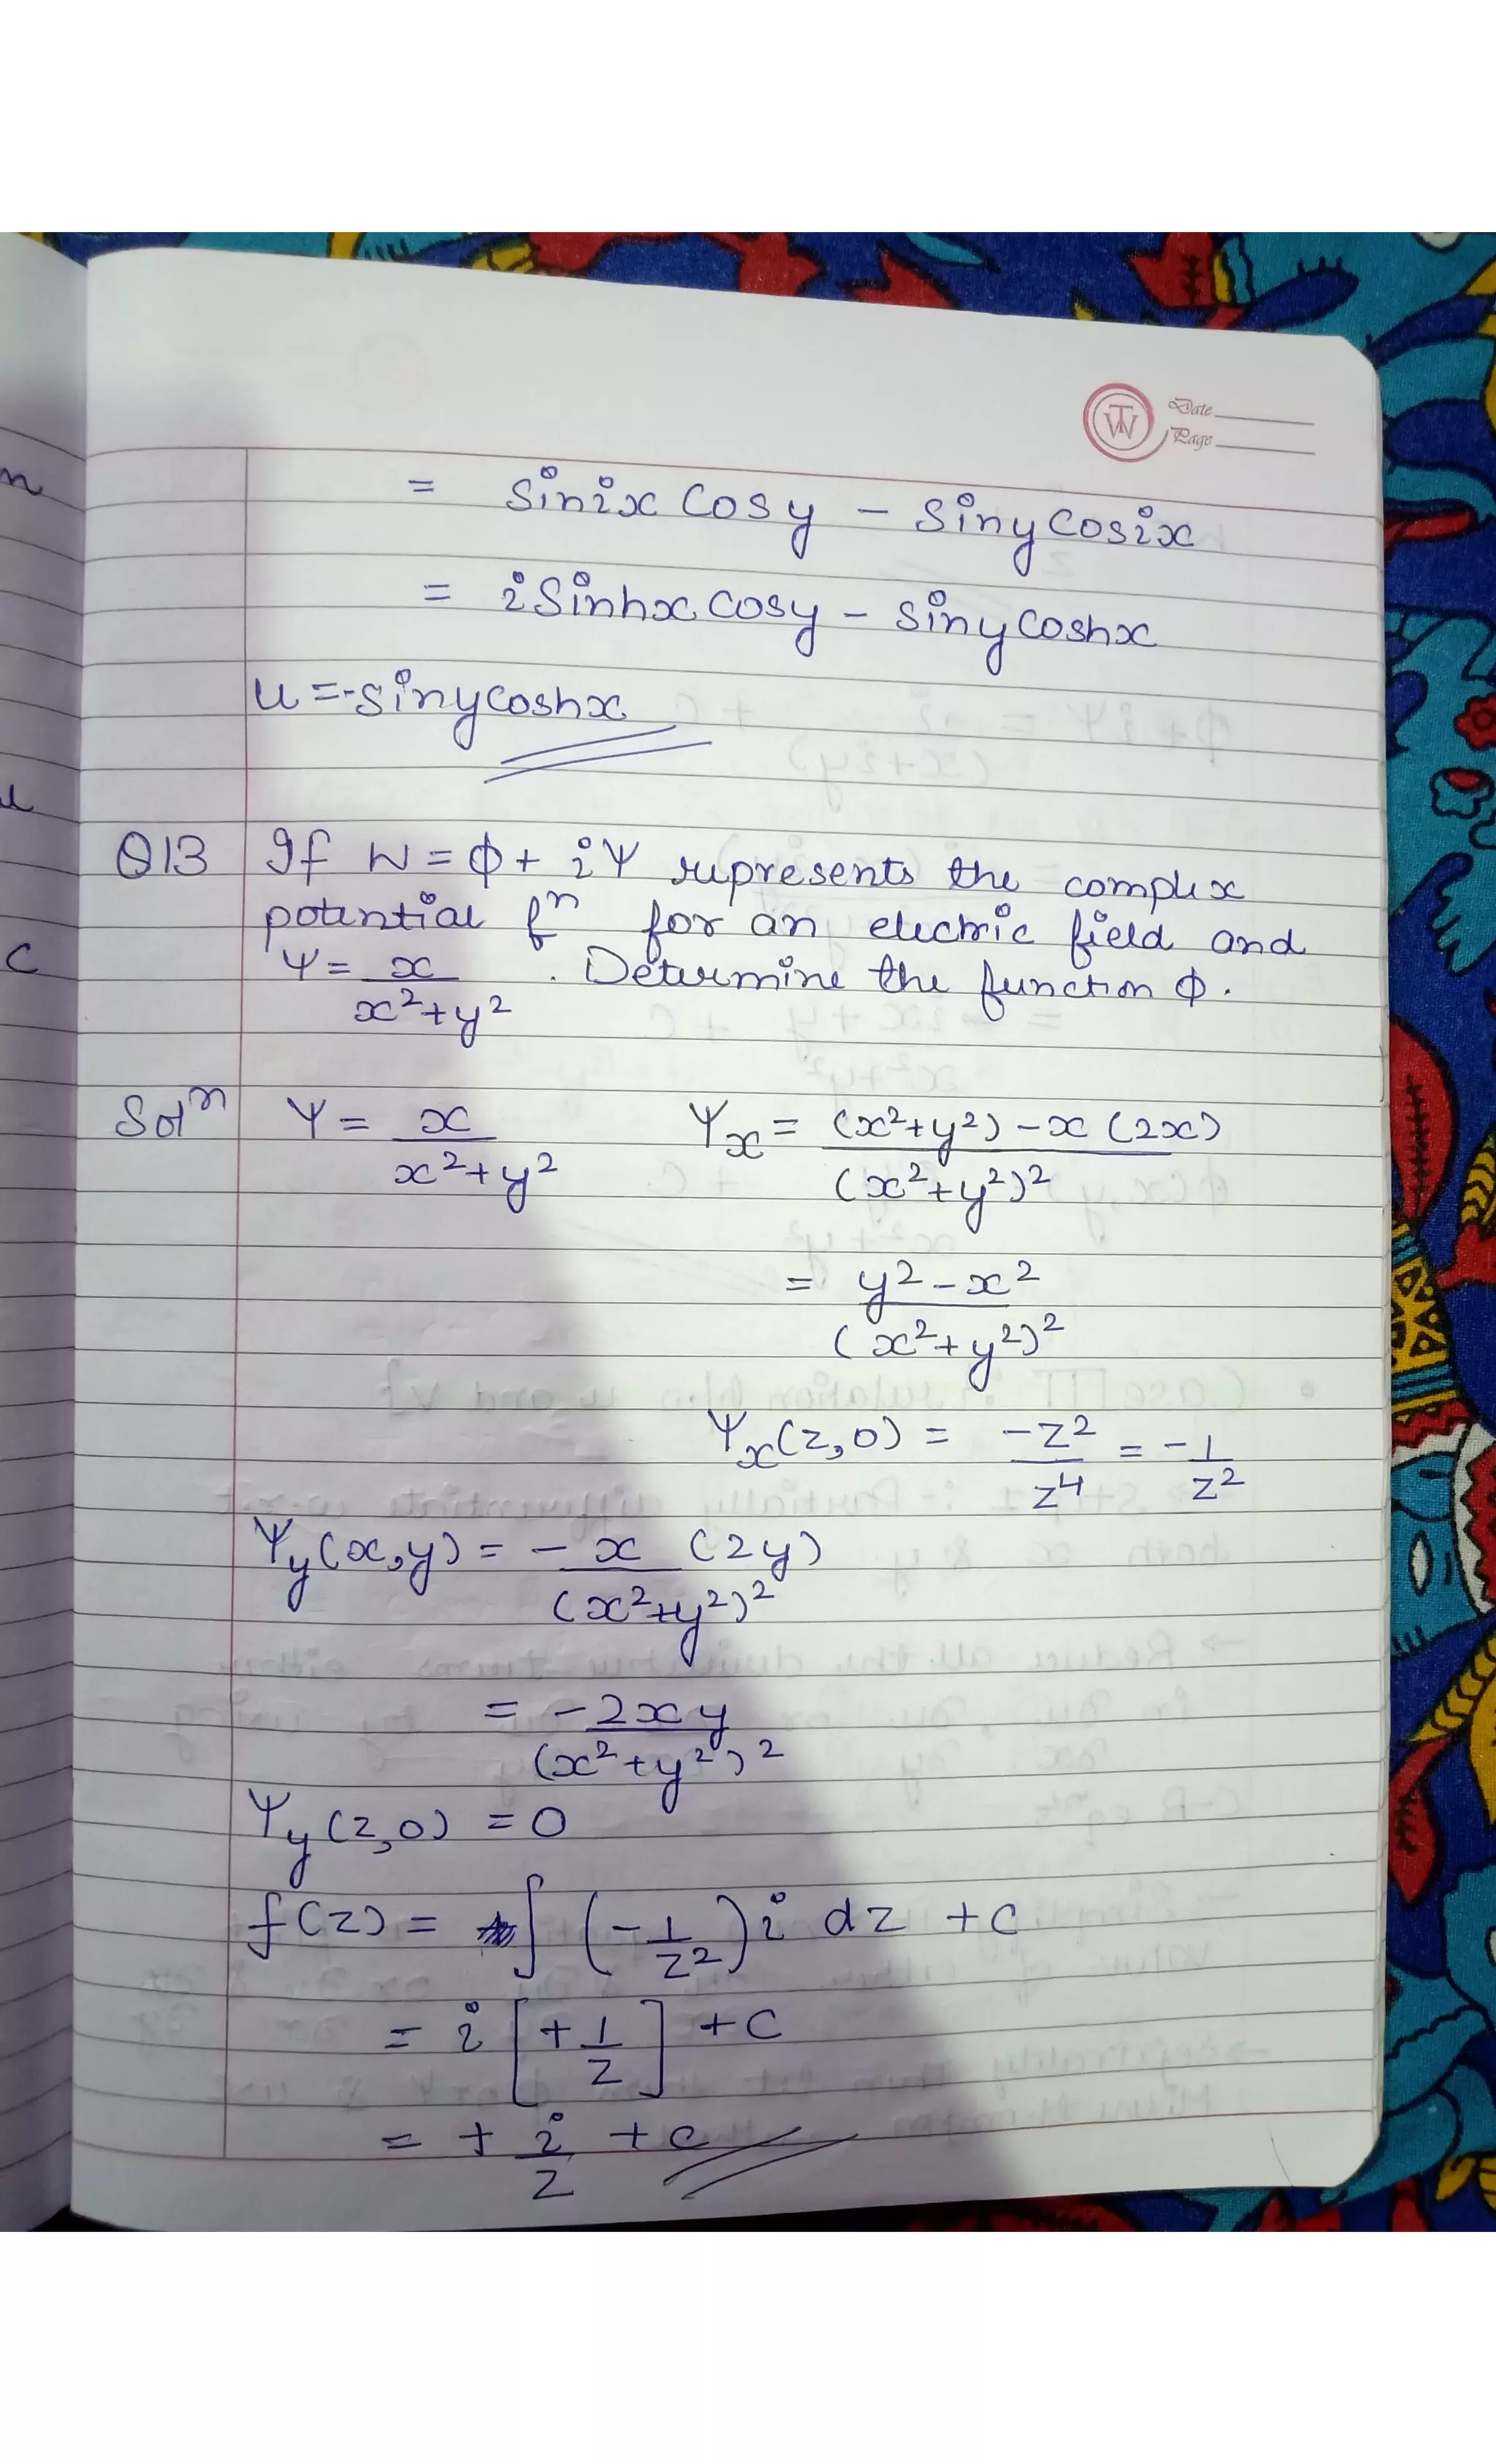 Date
Page
= Sin ix Cos y - Sin y Cos ix
= i Sinhx Cosy - Siny Coshx
u = -siny coshx
Q13 If W = Φ + iΨ represents the complex
potential fⁿ for an electric field and
Ψ = x / (x² + y²) . Determine the function Φ.
Solⁿ Ψ = x / (x² + y²) Ψx = ((x² + y²) - x (2x)) / (x² + y²)²
= (y² - x²) / (x² + y²)²
Ψx (z, 0) = -z² / z⁴ = -1 / z²
Ψy (x, y) = - x (2y) / (x² + y²)²
= -2xy / (x² + y²)²
Ψy (z, 0) = 0
f(z) = ∫ (-1/z²) i dz + C
= i [+ 1/z] + C
= + i/z + C